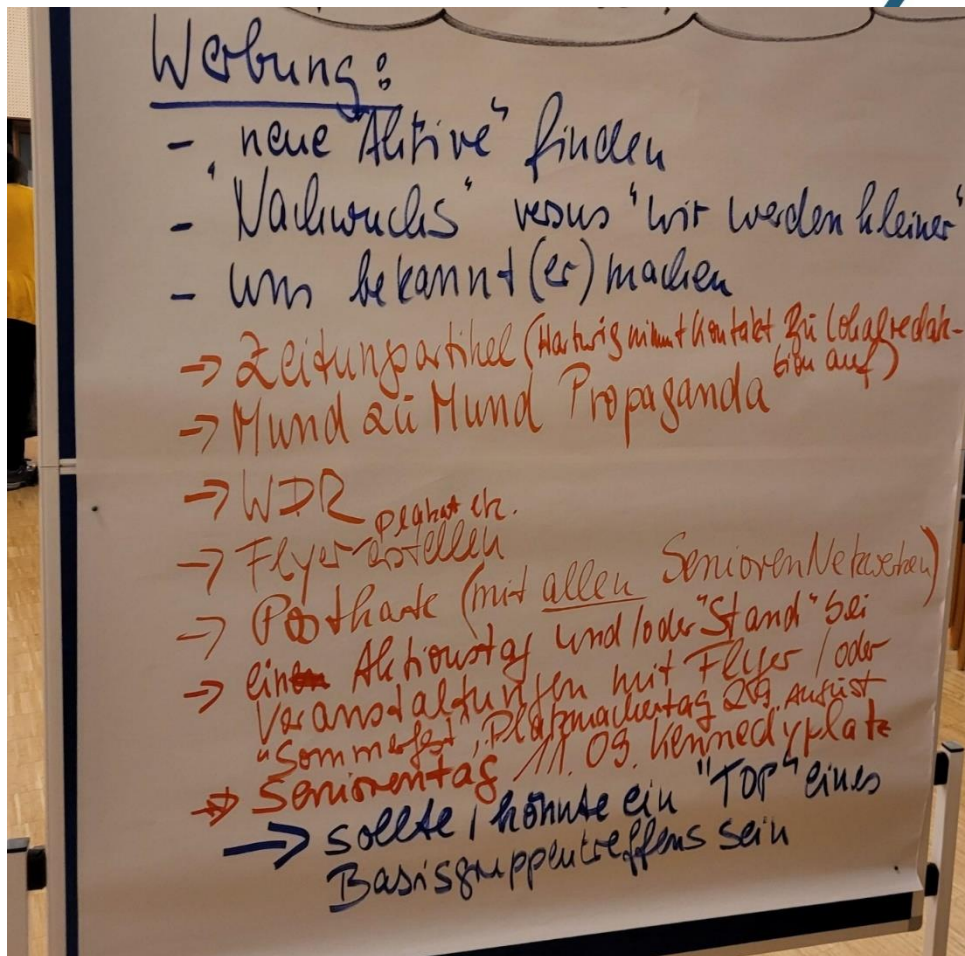 Werbung:
- neue "Aktive" finden
- "Nachwuchs" versus "wir werden kleiner"
- uns bekannt(er) machen
→ Zeitungsartikel (Hartwig nimmt Kontakt zu Lokalredak-
tion auf)
→ Mund zu Mund Propaganda
→ WDR
Plakat etc.
→ Flyer erstellen
→ Postkarte (mit allen SeniorenNetzwerken)
→ ein Aktionstag und/oder "Stand" bei
Veranstaltungen mit Flyer / oder
"Sommerfest", Platzmachertag August
→ Seniorentag 11.09. Kennedyplatz
→ sollte / könnte ein "TOP" eines
Basisgruppentreffens sein